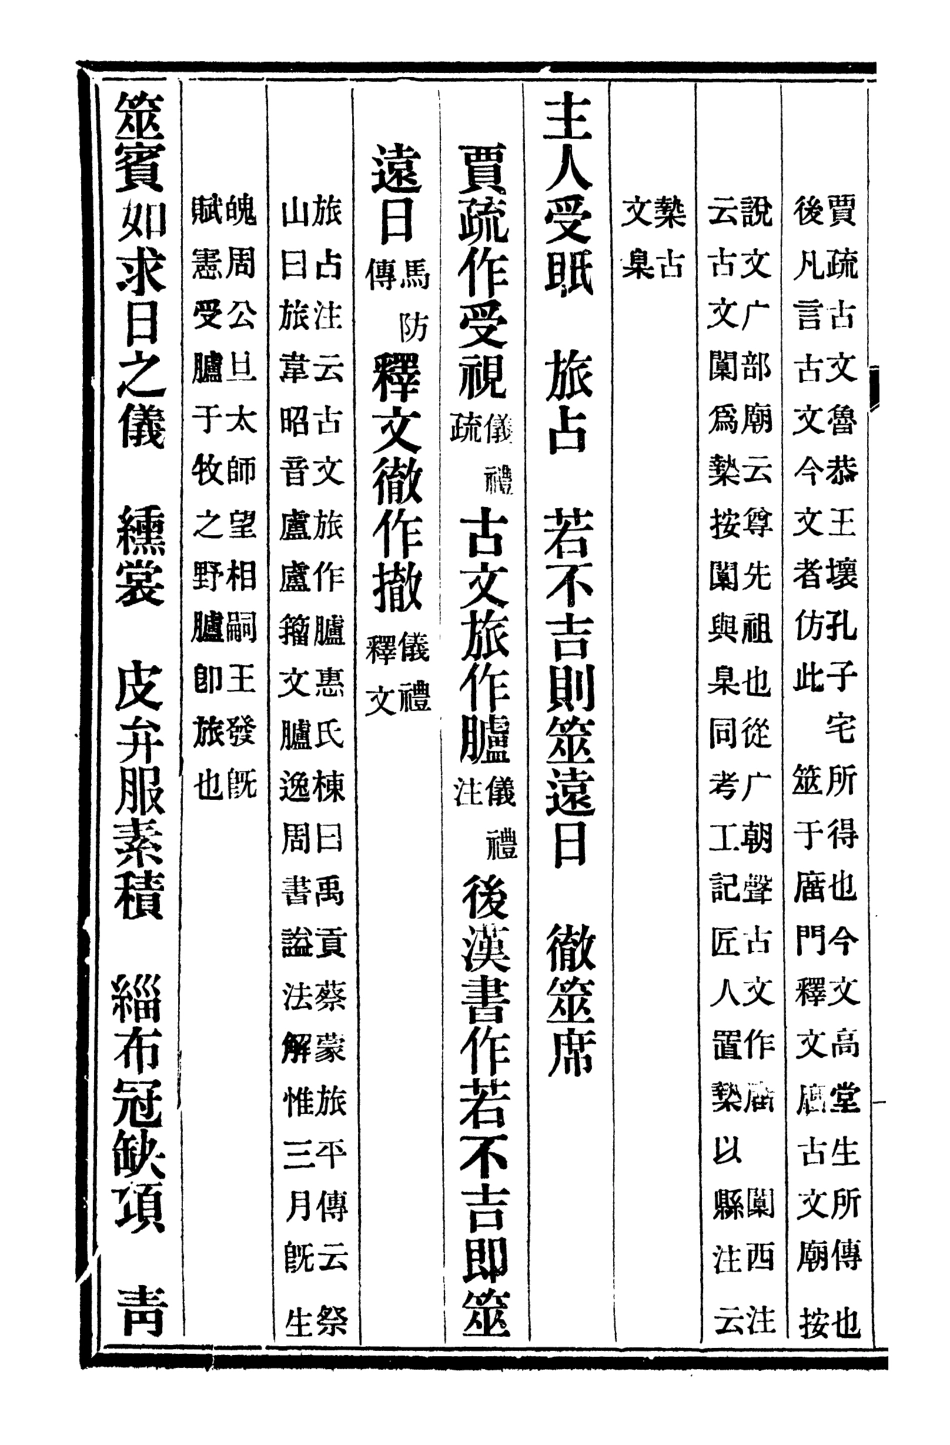 賈疏古文魯恭王壞孔子宅所得也今文高堂生所傳也
後凡言古文今文者仿此　筮于庿門釋文庿古文廟按
說文广部廟云尊先祖也從广朝聲古文作庿　闑西注
云古文闑爲槷按闑與臬同考工記匠人置槷以縣注云
槷古
文臬
主人受眡　旅占　若不吉則筮遠日　徹筮席
賈疏作受視儀禮疏古文旅作臚儀禮注後漢書作若不吉即筮
遠日馬防傳釋文徹作撤儀禮釋文
旅占注云古文旅作臚惠氏棟曰禹貢蔡蒙旅平傳云祭
山曰旅韋昭音盧盧籀文臚逸周書謚法解惟三月旣生
魄周公旦太師望相嗣王發旣
賦憲受臚于牧之野臚卽旅也
筮賓如求日之儀　纁裳　皮弁服素積　緇布冠缺項　靑